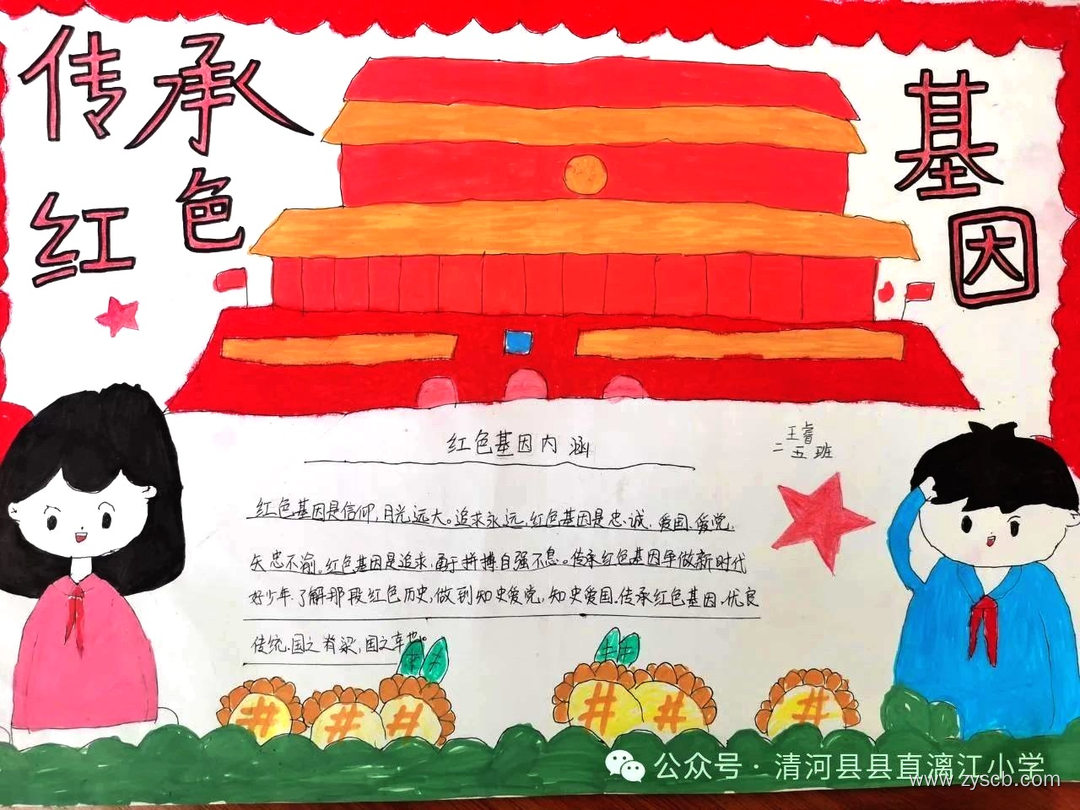 传承
红色
基因
红色基因内涵
王睿
二五班
红色基因是信仰,目光远大。追求永远,红色基因是忠诚、爱国、爱党,
矢忠不渝,红色基因是追求,勇于拼搏自强不息。传承红色基因争做新时代
好少年,了解那段红色历史,做到知史爱党,知史爱国,传承红色基因、优良
传统、国之脊梁,国之车也。
公众号·清河县县直漓江小学
www.zyscb.com